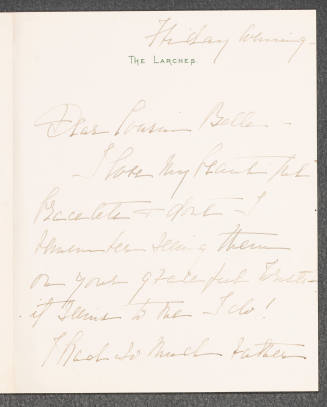 Friday evening -
THE LARCHES.
Dear Cousin Bella -
- I love my beautiful
Bracelets & don't I
remember seeing them
on your graceful wrists -
it seems to me - I do!
I had so much rather